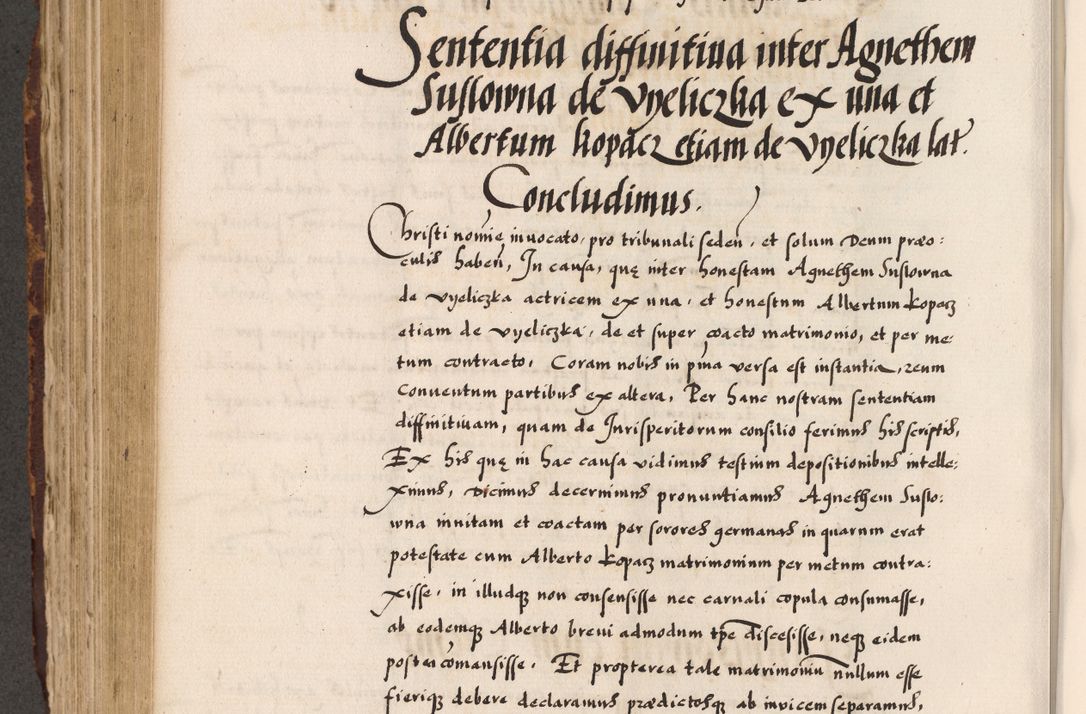 Sententia diffinitiua inter Agnethem
Suslowna de Vyeliczka ex una et
Albertum kopacz etiam de Vyeliczka lat.
Concludimus.
Christi nomie inuocato, pro tribunali seden, et solum Deum præo:
culis haben, In causa, quę inter honestam Agnethem Suslowna
de vyeliczka actricem ex una, et honestum Albertum kopacz
etiam de vyeliczka, de et super coacto matrimonio, et per me:
tum contracto, Coram nobis in prima versa est instantia, reum
Conuentum partibus ex altera, Per hanc nostram sententiam
diffinitiuam, quam de Jurisperitorum consilio ferimus his scriptis,
Ex his quę in hac causa vidimus testium depositionibus intelle:
ximus, Dicimus decernimus pronuntiamus Agnethem Suslo:
wna inuitam et coactam per sorores germanas in quarum erat
potestate cum Alberto kopacz matrimonium per metum contra:
xisse, in illudq non consensisse nec carnali copula consumasse,
ab eodemq Alberto breui admodum tpe discesisse, neq eidem
postea comansisse. Et propterea tale matrimoniu nullum esse
fieriq debere declaramus prædictosq ab inuicem separamus,